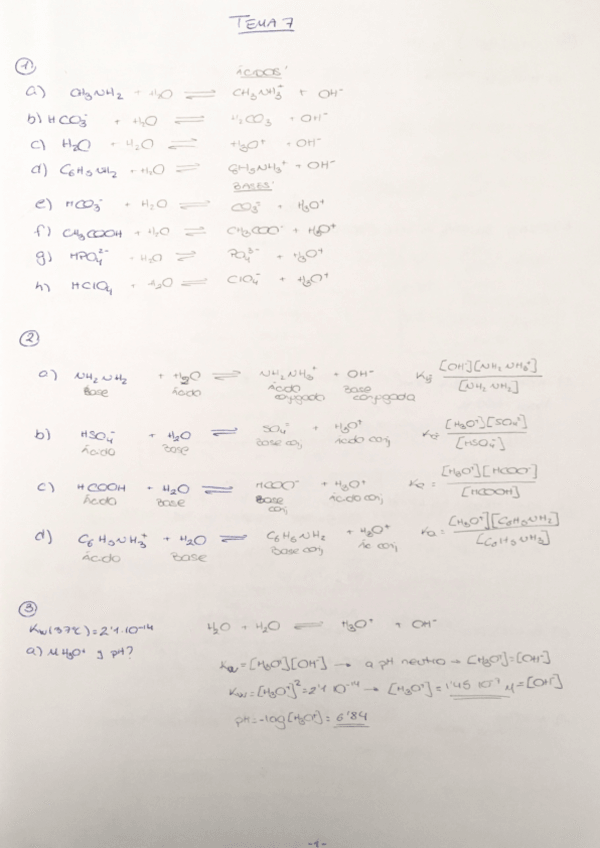 TEMA 7
1
ÁCIDOS:
a) CH3NH2 + H2O ⇌ CH3NH3+ + OH-
b) HCO3- + H2O ⇌ H2CO3 + OH-
c) H2O + H2O ⇌ H3O+ + OH-
d) C6H5NH2 + H2O ⇌ C6H5NH3+ + OH-
BASES:
e) HCO3- + H2O ⇌ CO3²- + H3O+
f) CH3COOH + H2O ⇌ CH3COO- + H3O+
g) HPO4²- + H2O ⇌ PO4³- + H3O+
h) HClO4 + H2O ⇌ ClO4- + H3O+
2
a) NH2NH2 + H2O ⇌ NH2NH3+ + OH- [OH-][NH2NH3+] / [NH2NH2]
Base Ácido Ácido conjugado Base conjugada
b) HSO4- + H2O ⇌ SO4²- + H3O+ Ka= [H3O+][SO4²-] / [HSO4-]
Ácido Base Base conj Ácido conj
c) HCOOH + H2O ⇌ HCOO- + H3O+ Ka= [H3O+][HCOO-] / [HCOOH]
Ácido Base Base conj Ácido conj
d) C6H5NH3+ + H2O ⇌ C6H5NH2 + H3O+ Ka= [H3O+][C6H5NH2] / [C6H5NH3]
Ácido Base Base conj Ác conj
3
Kw(37ºC)=2'1·10-14 H2O + H2O ⇌ H3O+ + OH-
a) M H3O+ y pH?
Kw=[H3O+][OH-] → a pH neutro → [H3O+]=[OH-]
Kw=[H3O+]²=2'1·10-14 → [H3O+]=1'45·10-7 M=[OH-]
pH=-log[H3O+]=6'84
-1-